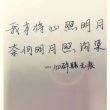 我本将心照明月
奈何明月照沟渠